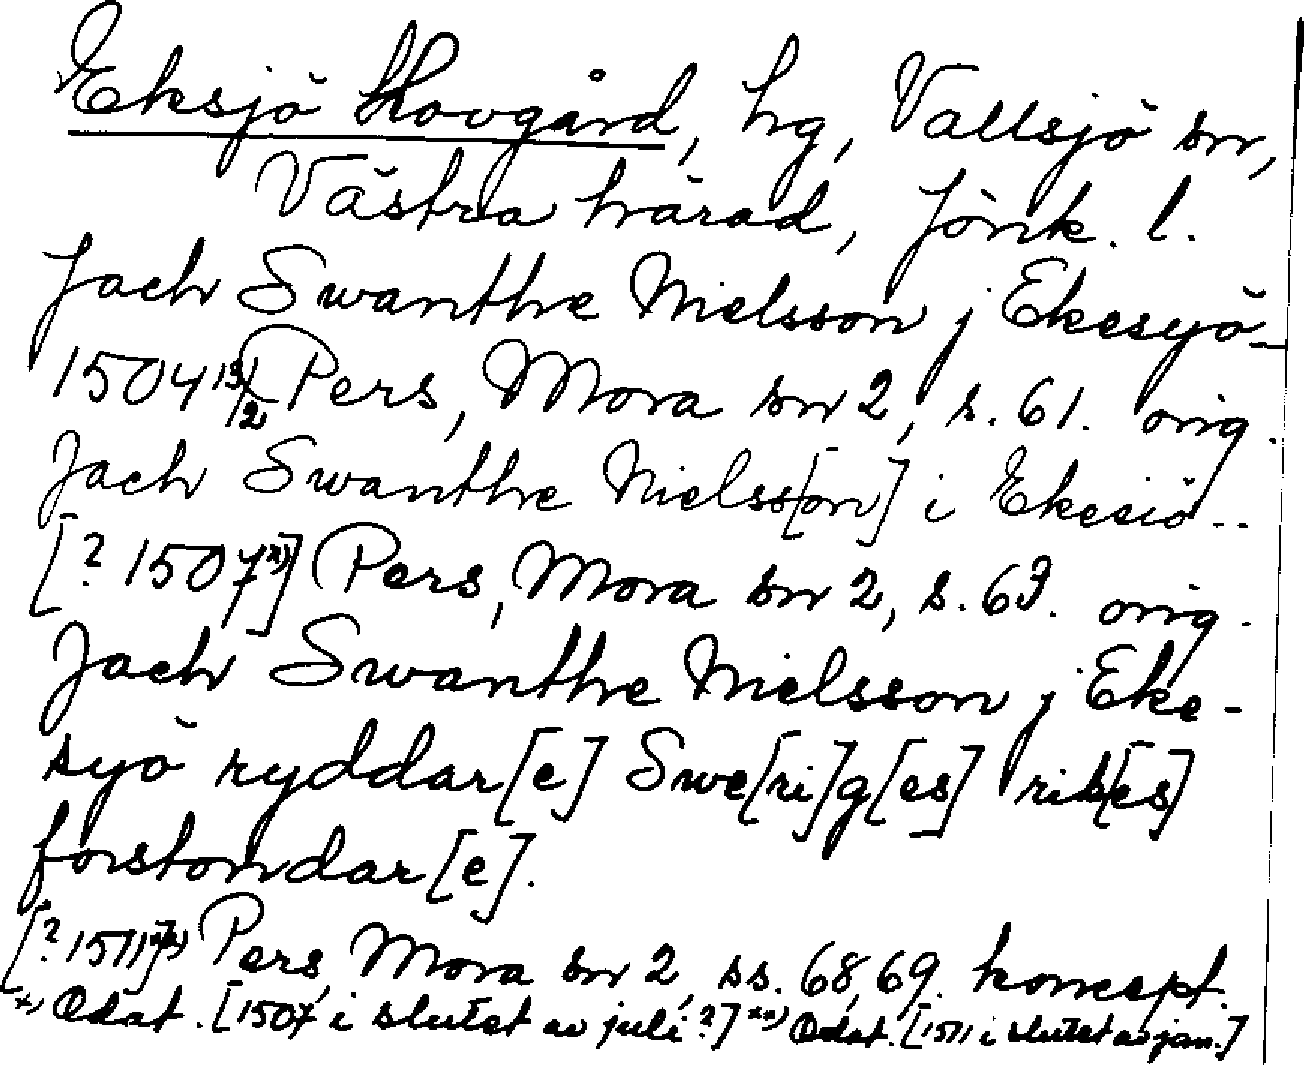 Eksjö Hovgård, hg, Vallsjö sn,
Västra härad, Jönk. l.
Jach Swanthe Nielsson j Ekesyö -
1504 13/2 Pers, Mora sn 2, s. 61. orig.
Jach Swanthe Nielss[on] i Ekesiö --
[? 1507 x)] Pers, Mora sn 2, s. 63. orig.
Jach Swanthe Nielsson j Eke-
syö ryddar[e] Swe[ri]g[es] rik[es]
forstondar[e].
[? 1511] xx) Pers, Mora sn 2, ss. 68, 69. koncept.
x) Odat. [1507 i slutet av juli?] xx) Odat. [1511 i slutet av jan.]